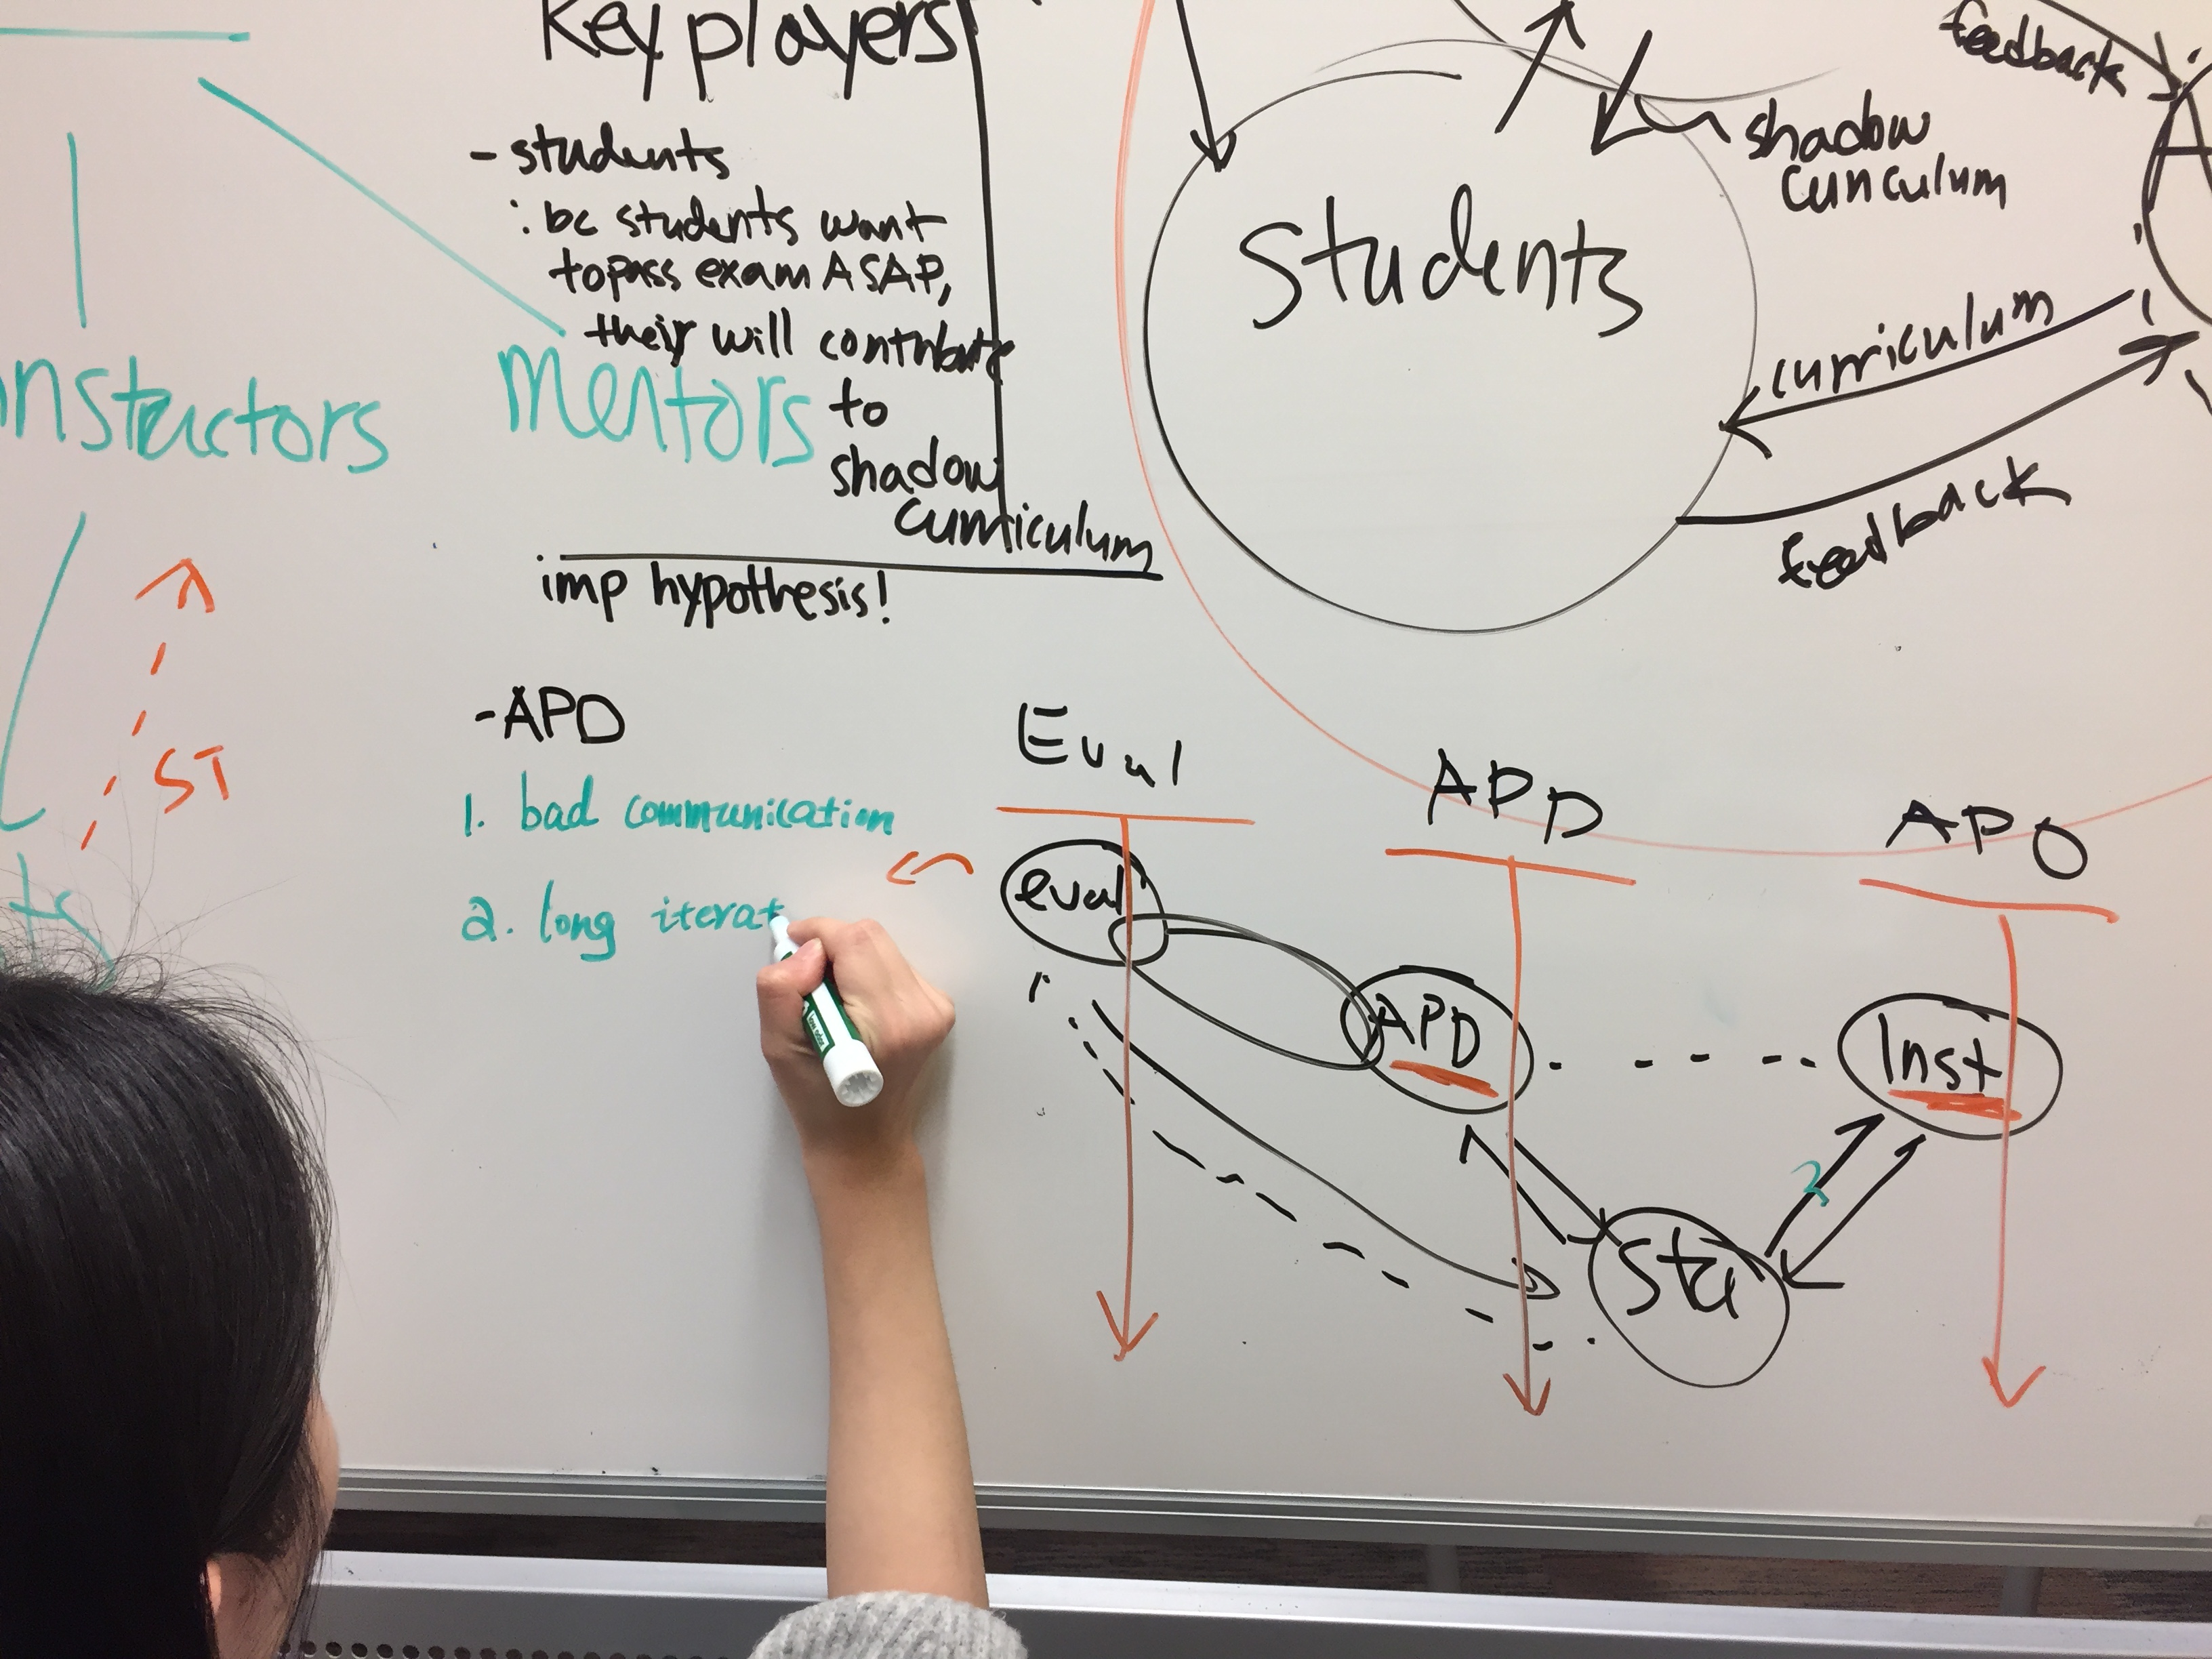 Key players
- students
: bc students want
to pass exam ASAP,
their will contribute
to
shadow
curriculum
imp hypothesis!
instructors
Mentors
ST
ts
- APD
1. bad communication
2. long iterat
students
shadow
curriculum
feedback
A
curriculum
feedback
Eval
APD
APO
eval
APD
Inst
Stu
2